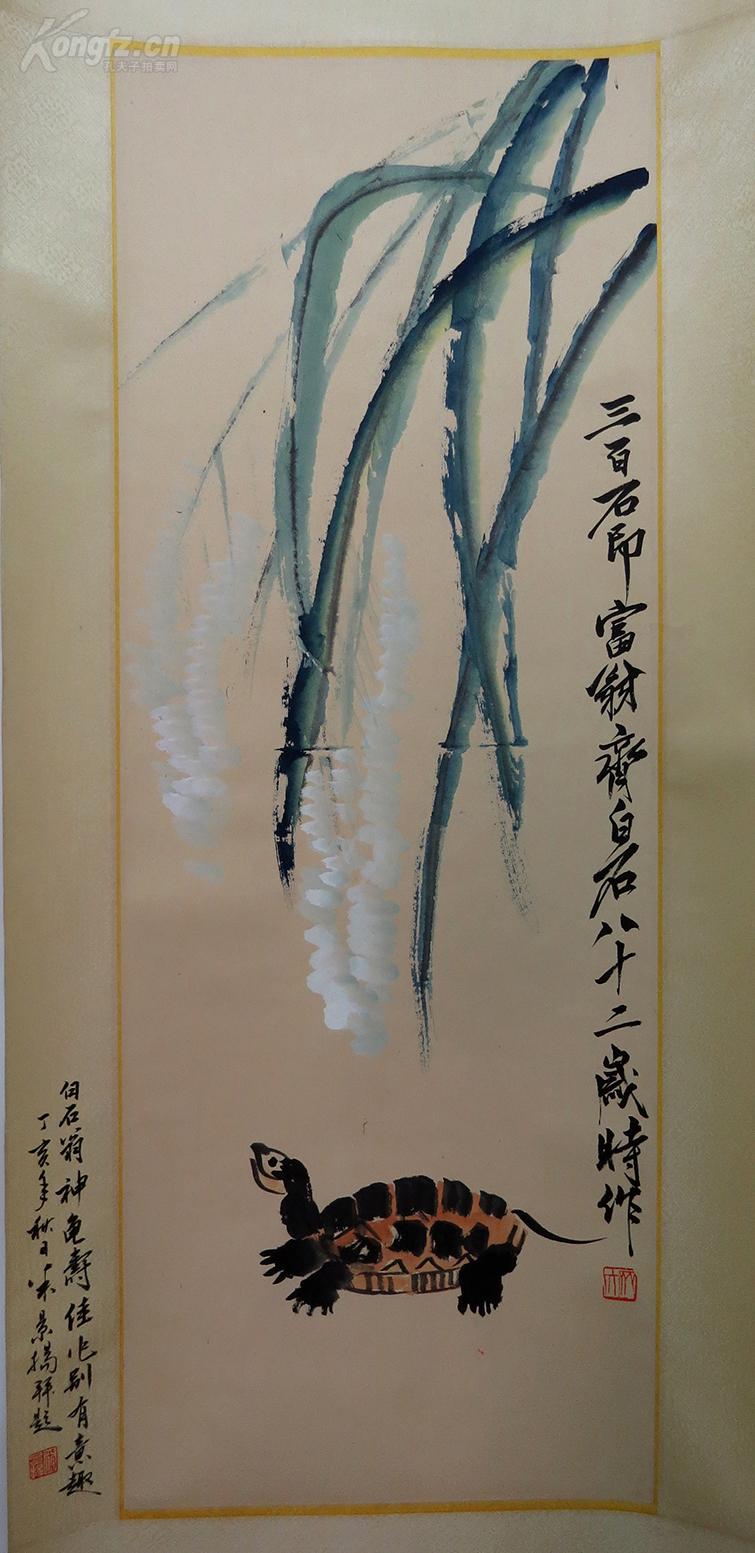 Kongfz.cn
孔夫子拍卖网
三百石印富翁齊白石八十二歲時作
白石翁神龜壽佳作别有意趣
丁亥年秋月
拜题